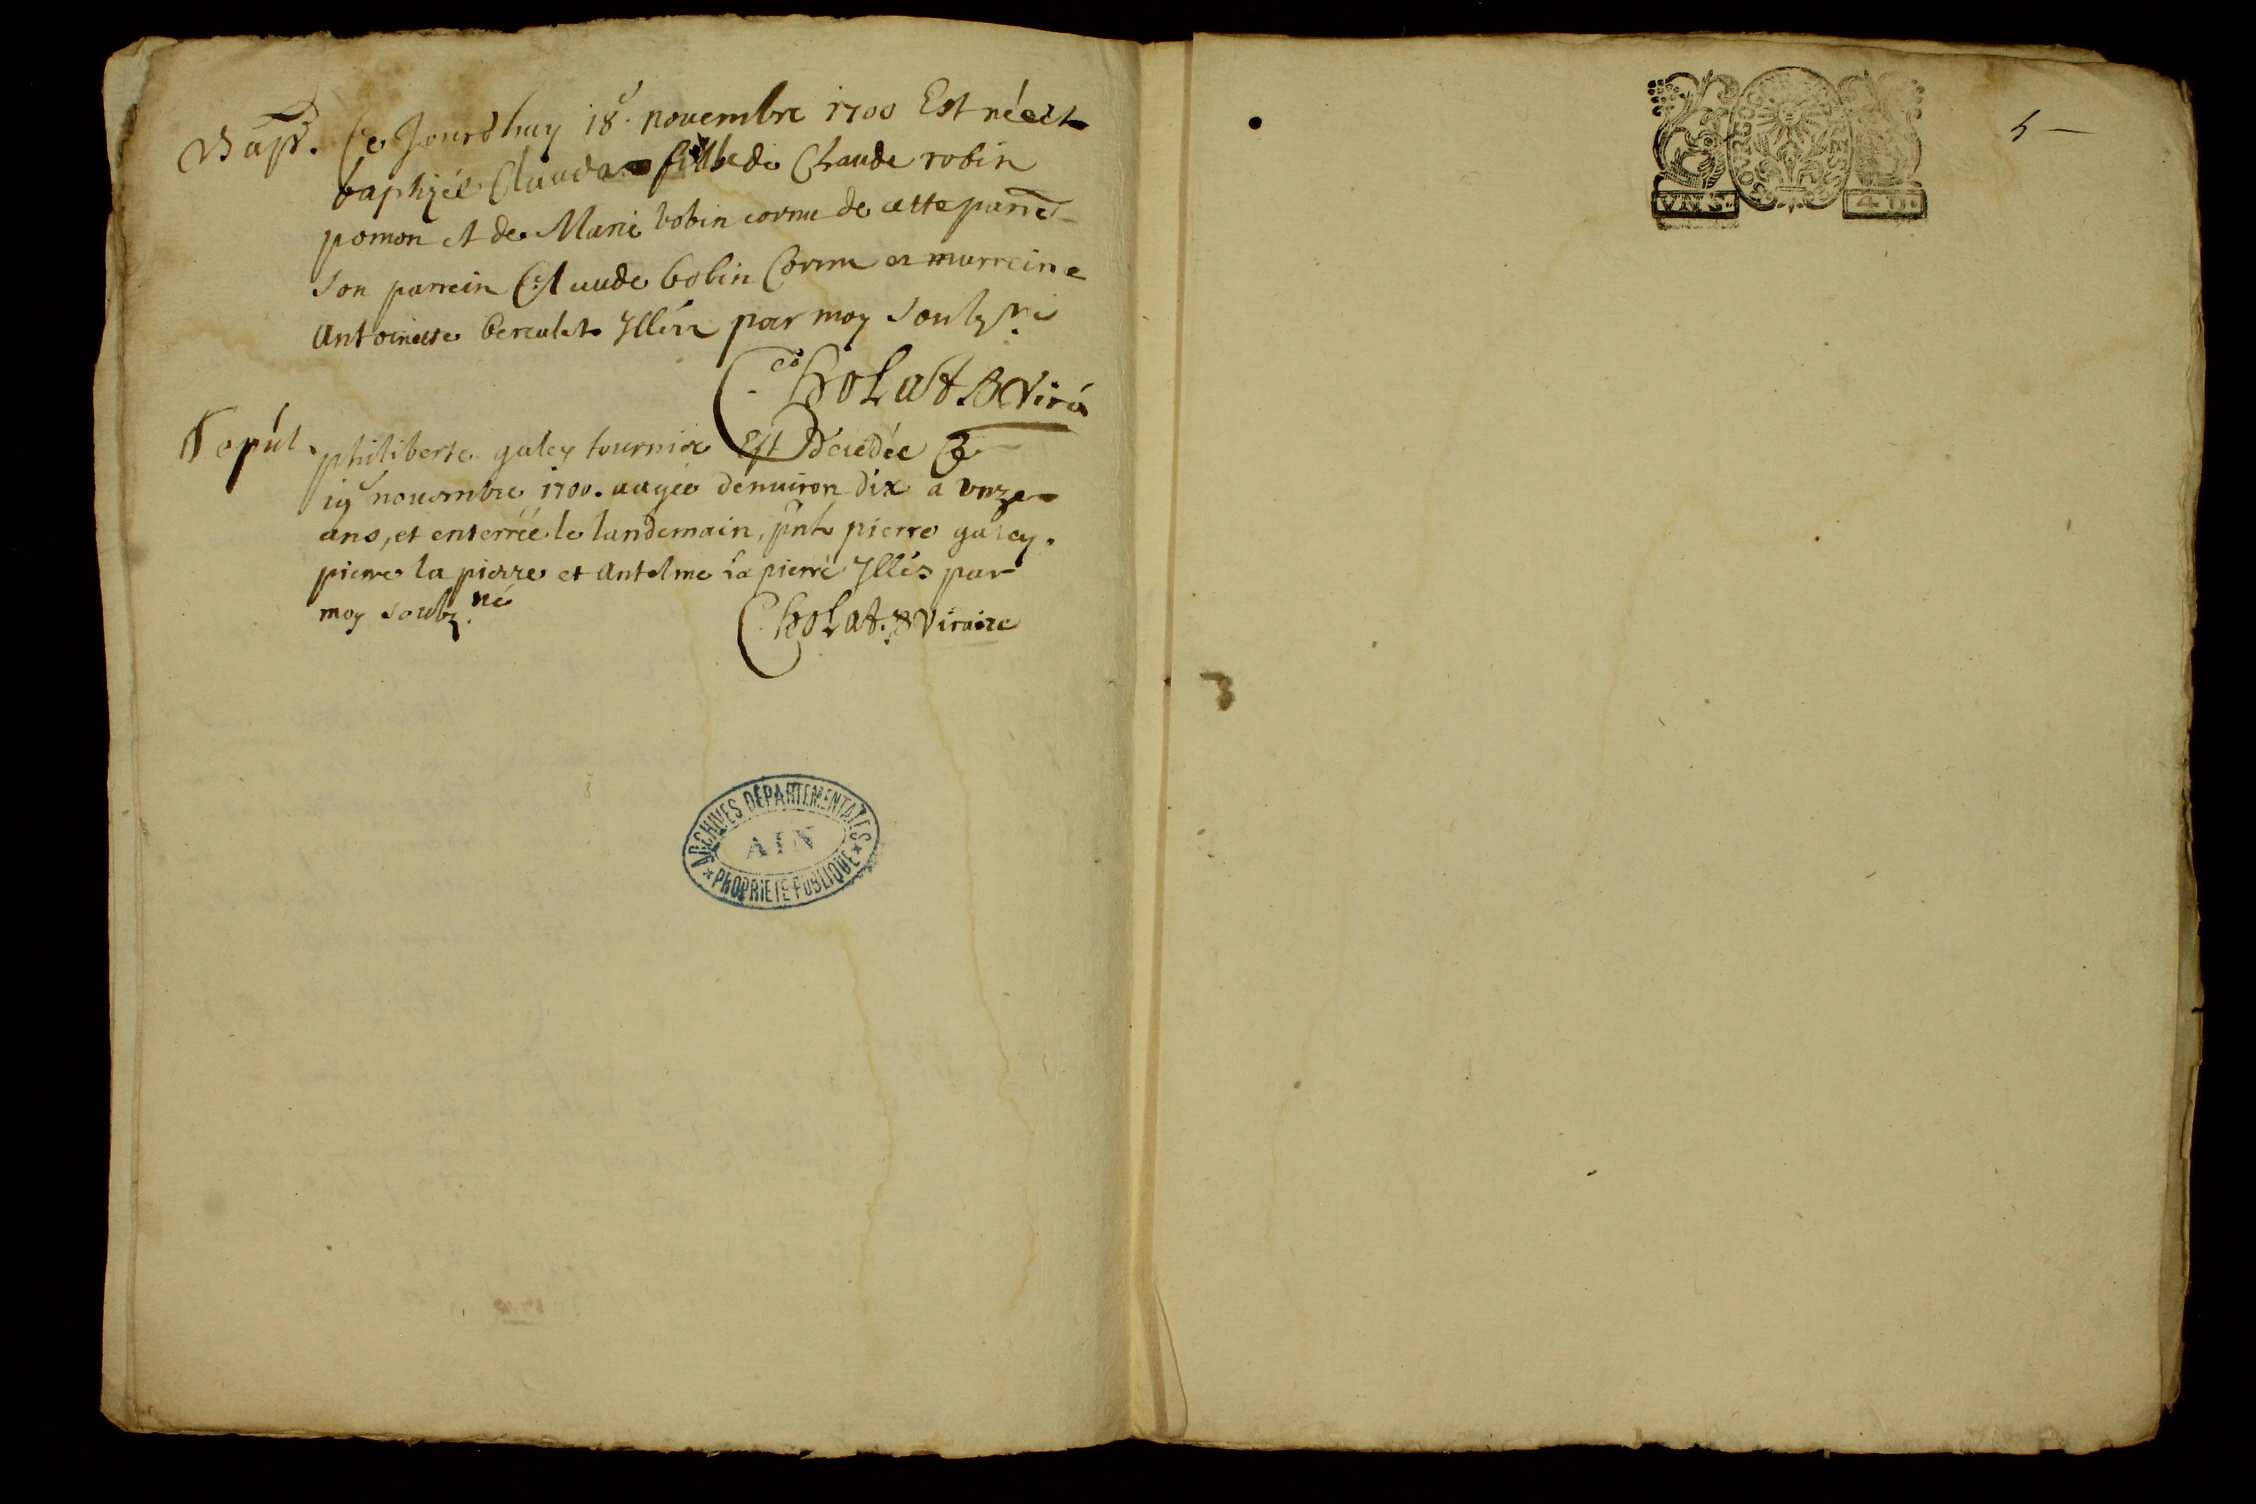 Bapt. Ce Jourdhuy 18e. novembre 1700 Est née et
baptizée Clauda fille de Claude robin
pomon et de Marie bobin cornu de cette parre
son parrein Claude bobin Cornu et marreine
Antoinette berculet Illéz par moy soubzné
Cholat Vire
Sepul. philiberte galey tournier Est Décédée Ce
19e novembre 1700. aagée denuiron dix a vnze
ans, et enterrée le landemain, pnts pierre galey.
pierre la pierre et Antelme la pierre Illés par
moy soubz.né
Cholat. Vicaire
ARCHIVES DÉPARTEMENTALES
AIN
PROPRIÉTÉ PUBLIQUE
BOVRGOG BRESSE
VN S.
4 D.
5